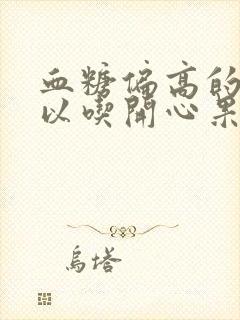 血糖偏高的
以喫開心果
烏塔